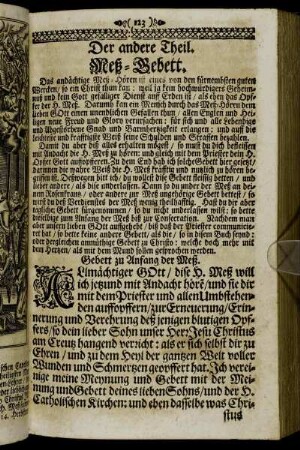 123
Der andere Theil.
Meß-Gebett.
Das andächtige Meß-Hören ist eines von den fürnembsten guten
Wercken/ so ein Christ thun kan: weil ja kein hochwürdigers Geheim-
nuß und kein Gott gefälliger Dienst auf Erden ist/ als eben das Opf-
fer der H. Meß. Darumb kan ein Mensch durch das Meß-Hören dem
lieben GOtt einen unendlichen Gefallen thun/ allen Englen und Heili-
gen neue Freud und Glory verursachen/ für sich und alle Lebendige
und Abgestorbene Gnad und Barmhertzigkeit erlangen: und auf die
leichteste und kräfftigste Weiß seine Schulden und Straffen bezahlen.
Damit du aber diß alles erhalten mögest/ so must du dich befleissen
mit Andacht die H. Meß zu hören: und gleich mit dem Priester dein H.
Opfer Gott aufopfferen. Zu dem End hab ich solche Gebett hier gesetzt/
darinnen die wahre Weiß die H. Meß kräfftig und nutzlich zu hören
seynd. Deßwegen bitt ich/ du wollest diese Gebett fleissig betten/ und
lieber andere/ als die unterlassen. Dann so du under der Meß an dei-
nen Rosenkrantz/ oder andere zur Meß ungehörige Gebett bettest/ so
wirst du deß Verdiensts der Meß wenig theilhafftig. Hast du dir aber
tägliche Gebett fürgenommen/ so du nicht underlassen wilst; so bette
dieselbige zum Anfang der Meß biß zur Consecration. Nachdem man
aber unsern lieben GOtt aufhebt/ biß daß der Priester communicie-
ret hat/ so bette keine andere Gebett/ als die/ so in disem Buch stehen/
oder dergleichen anmüthige Gebett zu Christo: welche doch mehr mit
dem Hertzen/ als mit dem Mund sollen gesprochen werden.
Gebett zu Anfang der Meß.
ALmächtiger GOtt/ dise H. Meß will
ich jetzund mit Andacht hörē/ und sie dir
mit dem Priester und allen Umbstehen-
den aufopfferen/ zur Erneuerung/ Erin-
nerung und Verehrung deß jenigen blutigen Opf-
fers/ so dein lieber Sohn unser Herr JEsu Christus
am Creutz hangend verricht: als er sich selbst dir zu
Ehren/ und zu dem Heyl der gantzen Welt voller
Wunden und Schmertzen geopffert hat. Ich verei-
nige meine Meynung und Gebett mit der Mei-
nung und Gebett deines lieben Sohns/ und der H.
Catholischen Kirchen: und eben dasselbe was Chri-
stus